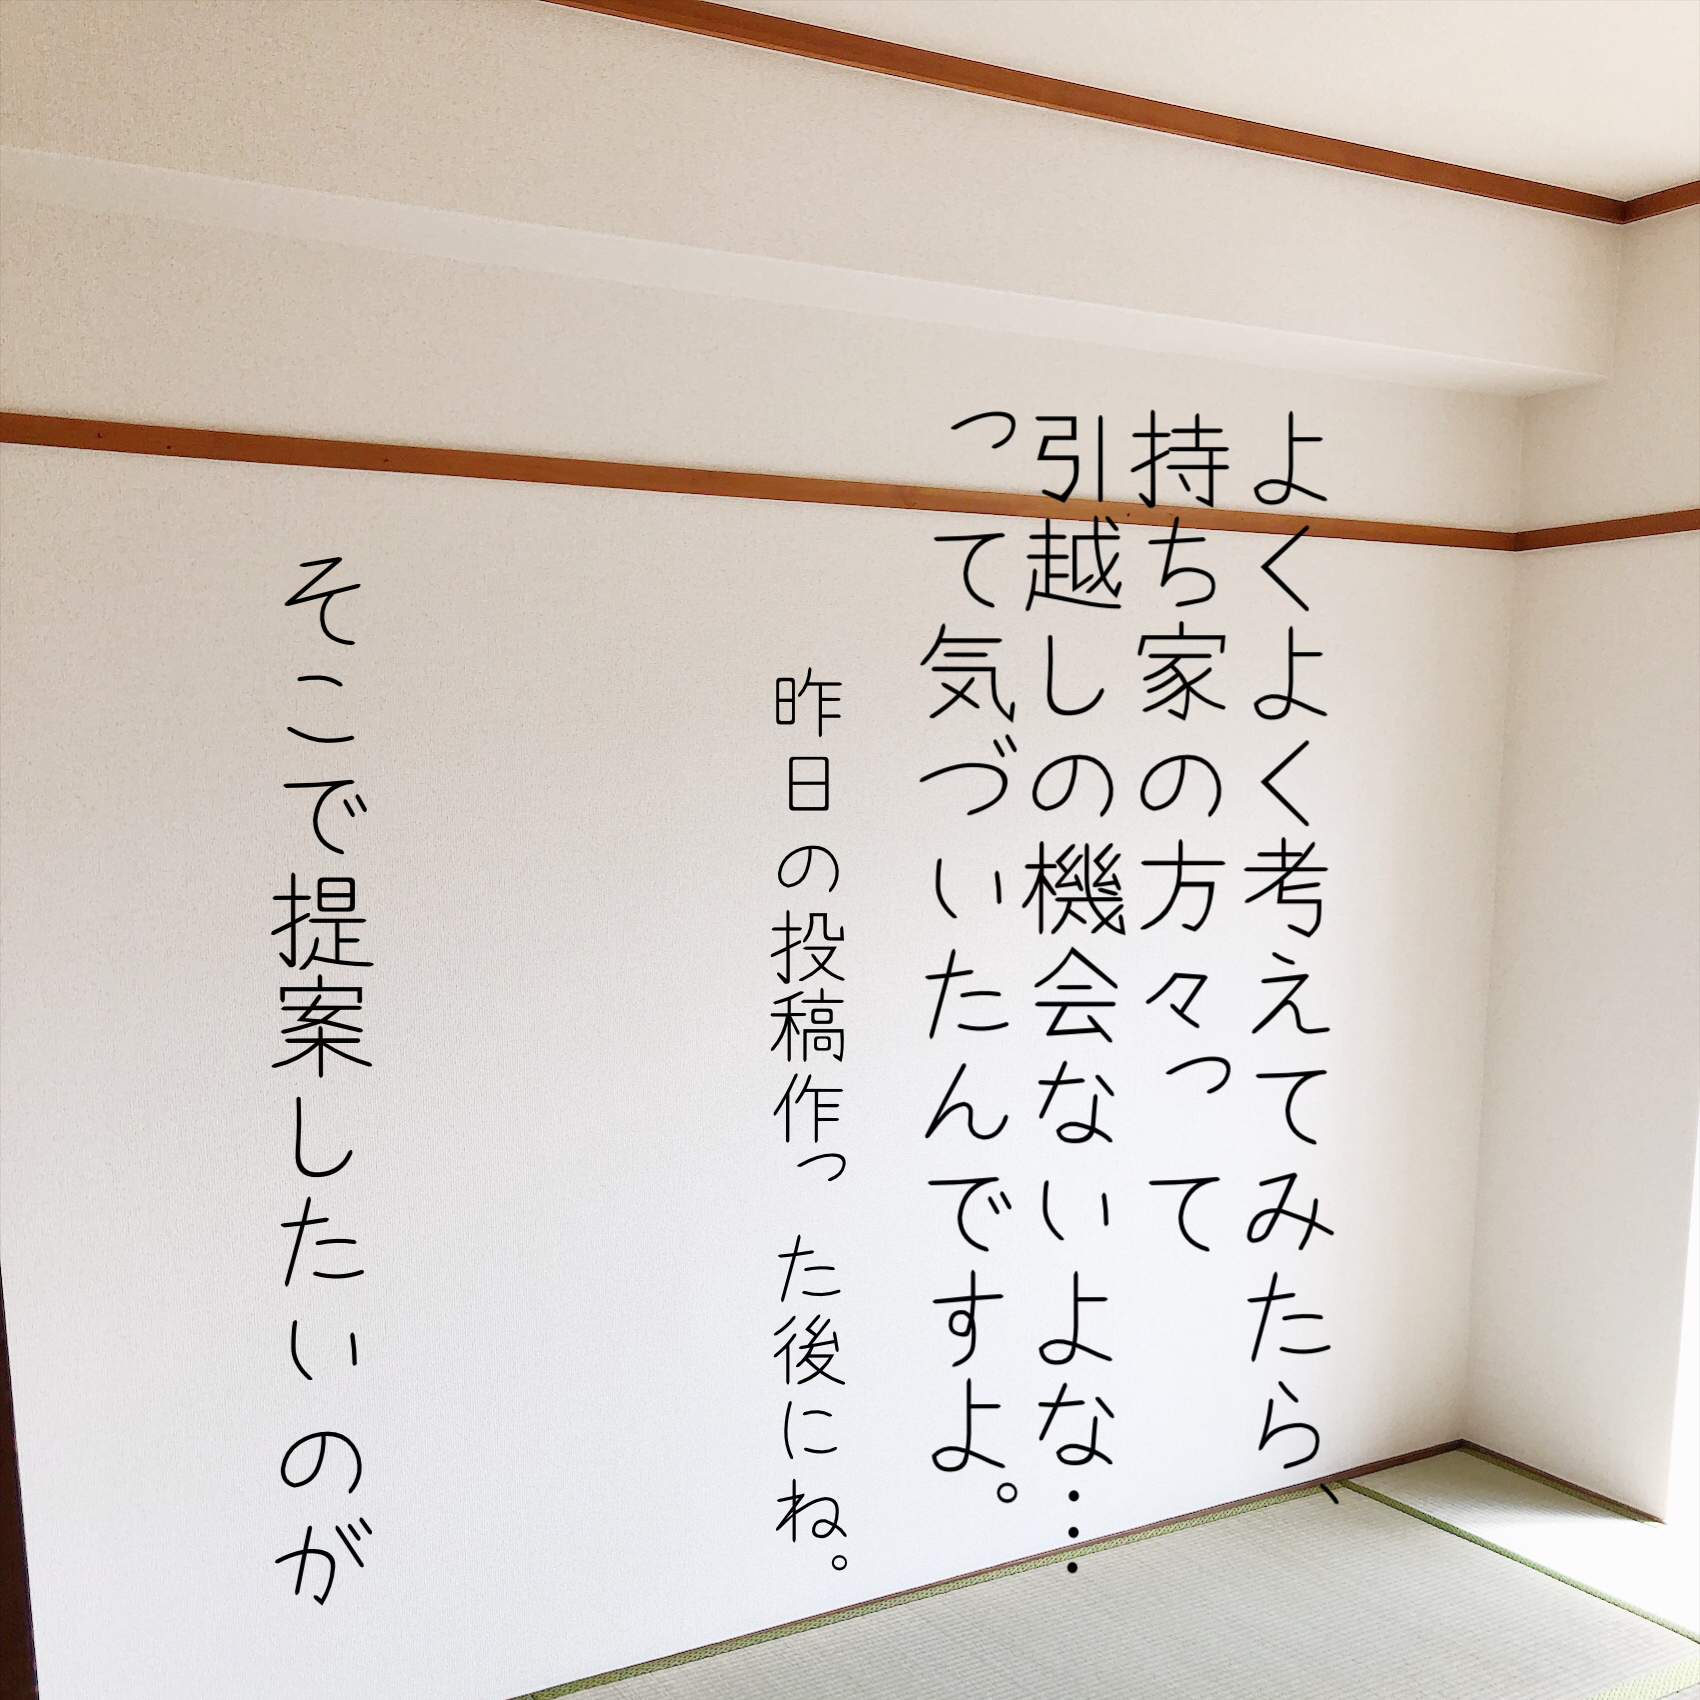 よくよく考えてみたら、
持ち家の方々って
引越しの機会ないよな…
って気づいたんですよ。
昨日の投稿作った後にね。
そこで提案したいのが